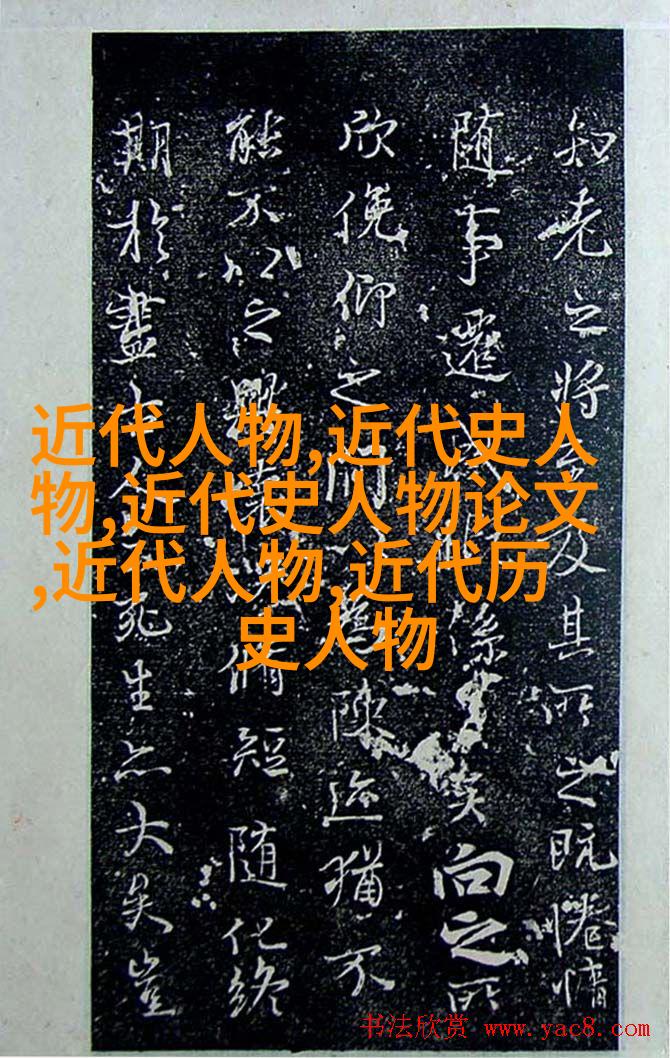 近代人物,近代史人
物,近代史人物论文
,近代人物,近代历
史人物
知老之將及其所之既惓情
随事遷係之矣向之所
欣俛仰之陳迹猶不
能不以之興脩短随化終
期於盡死生亦大矣豈
书法欣赏 www.yac8.com